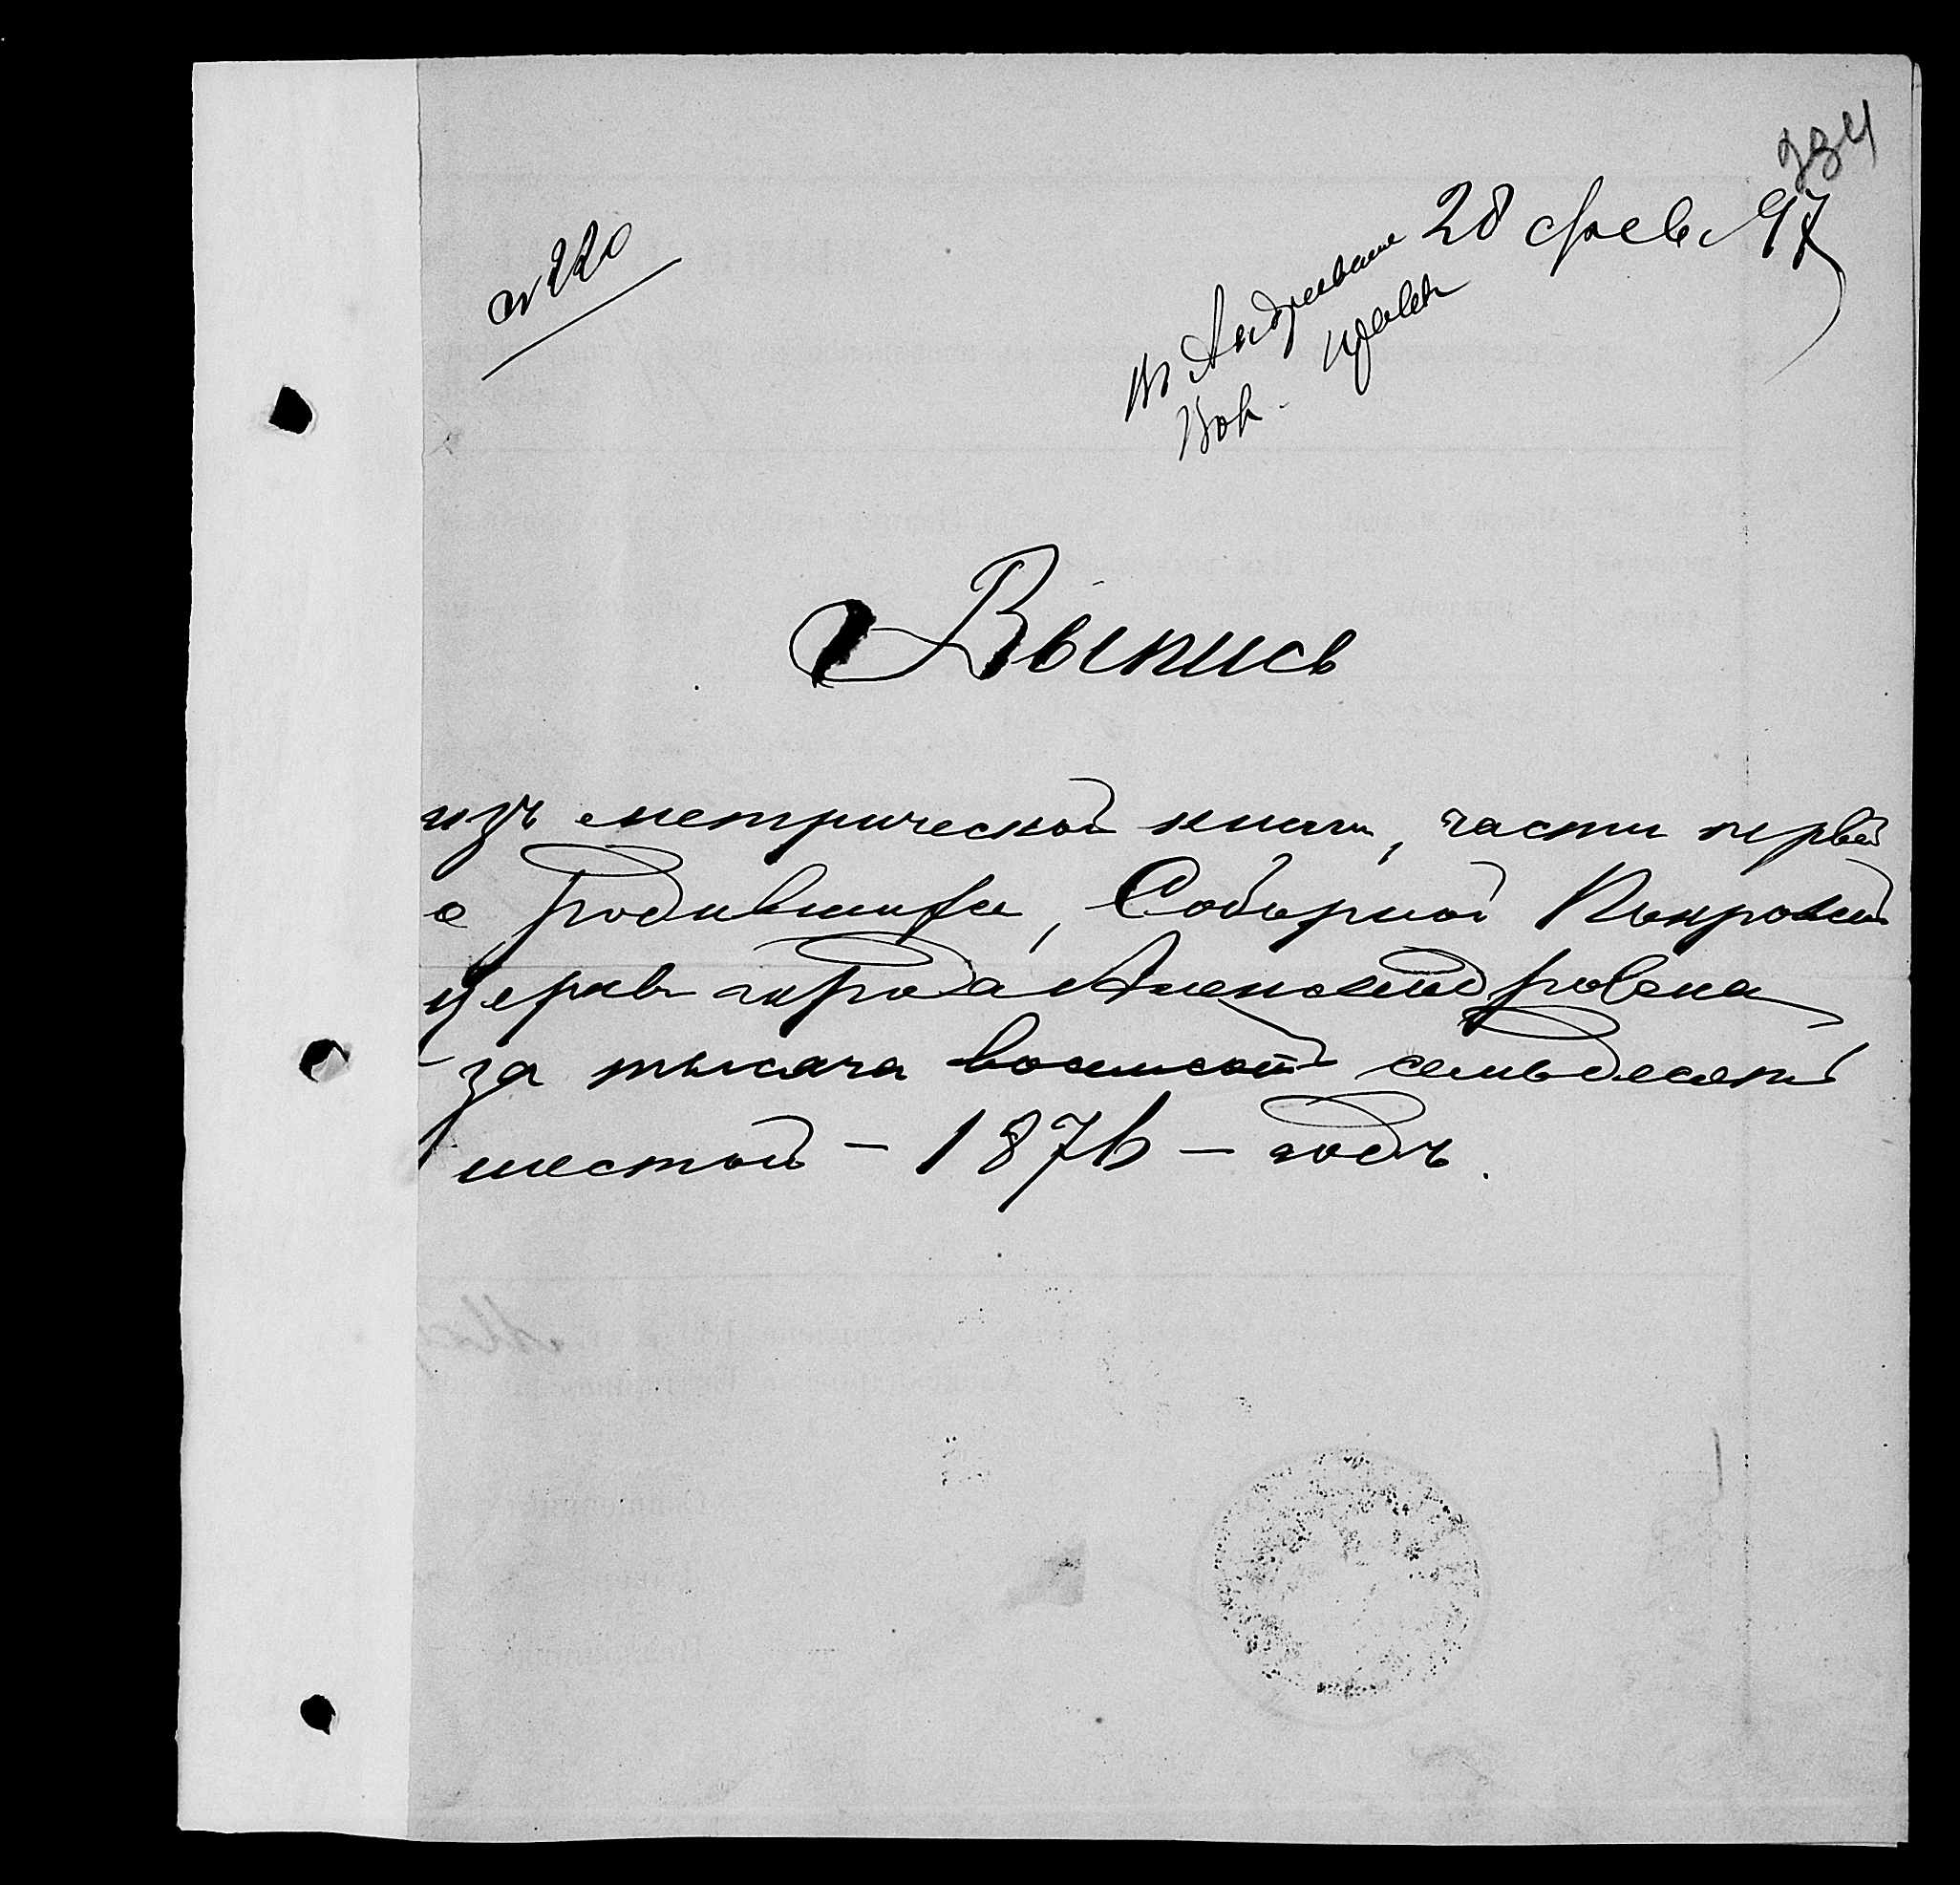 334
№ 220
28 февр 97
Выпись
изъ метрической книги, части первой
о родившихся, Соборной Покровской
церкви города Александровска
за тысяча восемьсотъ семьдесятъ
шестой – 1876 – годъ.